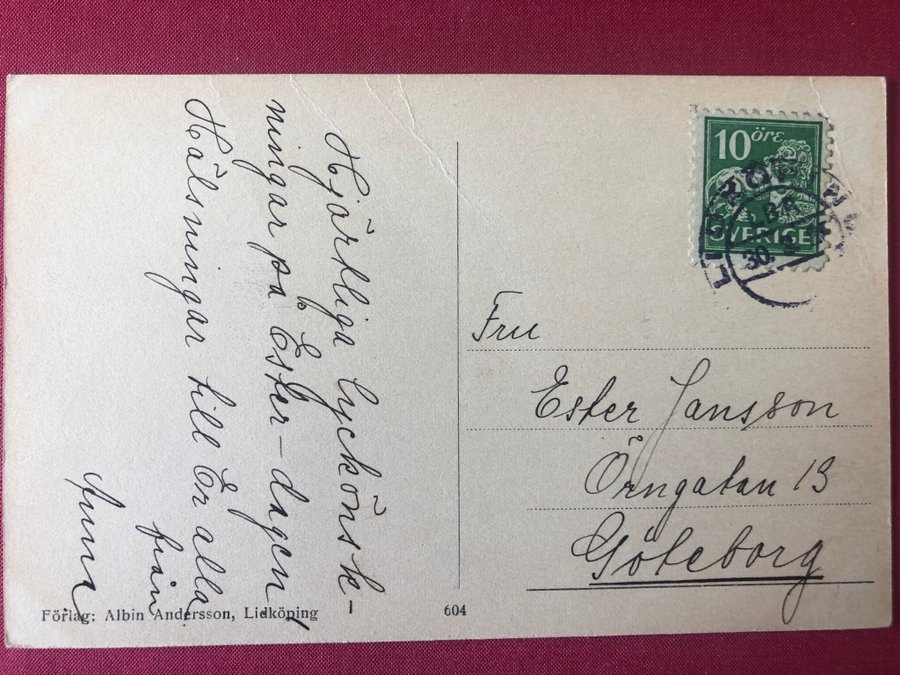 Hjärtliga lyckönsk-
ningar på Ester-dagen
Hälsningar till Er alla
från
Anna
10 öre
SVERIGE
LIDKÖPING
30.
Fru
Ester Jansson
Örngatan 13
Göteborg
Förlag: Albin Andersson, Lidköping
604